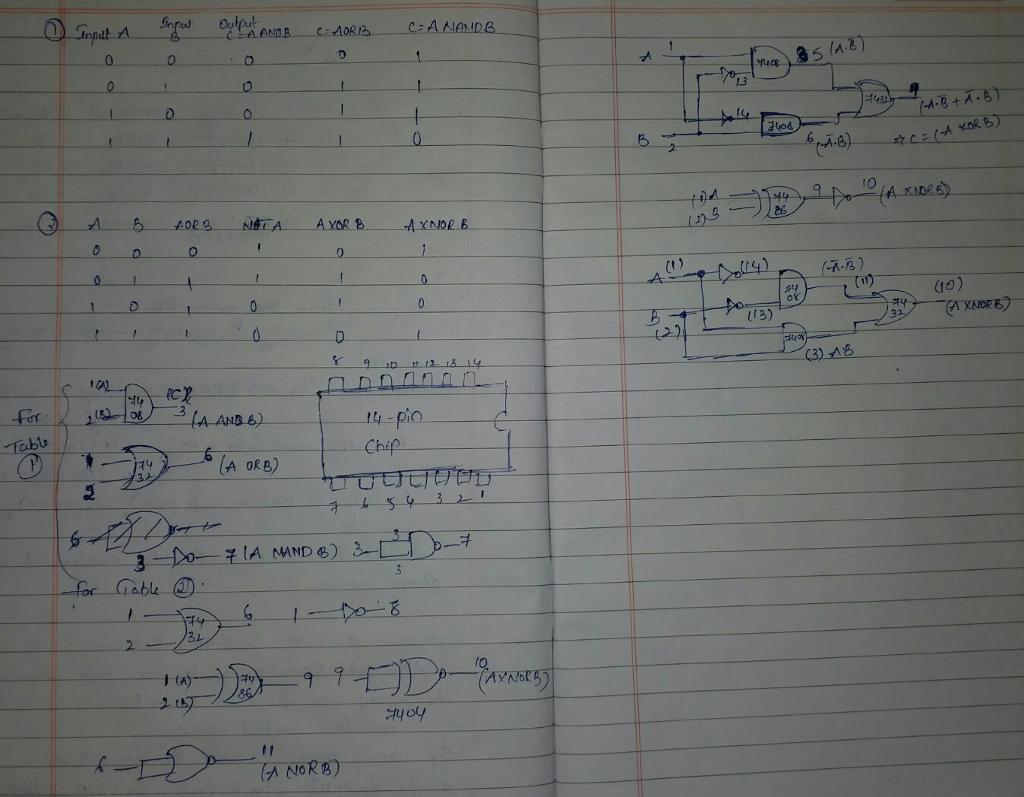 ① Input A Input B Output C=A ANDB C=AORB C=A NANDB
0 0 0 0 1
0 1 0 1 1
1 0 0 1 1
1 1 1 1 0
② A B AORB NOTA AXORB AXNORB
0 0 0 1 0 1
0 1 1 1 1 0
1 0 1 0 1 0
1 1 1 0 0 1
8 9 10 11 12 13 14
14-pin
Chip
7 6 5 4 3 2 1
For Table ①
1(A)
2(B)
74 08
3 (A ANDB)
1
2
74 32
6 (A ORB)
6
3 7 (A NANDB) 3 3 3 7
For Table ②.
1
2
74 32
6
1 8
1(A)
2(B)
74 86
9
9 10 (AXNORB)
7404
6 11 (A NORB)
A 1
7408
5 (A.B̅)
13
14
7432
9
(A.B̅ + A̅.B)
B 2
7408
6 (A̅.B)
⇒ C = (A XORB)
(1)A
(2)B
74 86
9 10 (A XNORB)
A (1) (14) (A̅.B̅)
74 08
(11)
B (2) (13)
74 32
(10) (AXNORB)
7408
(3) AB